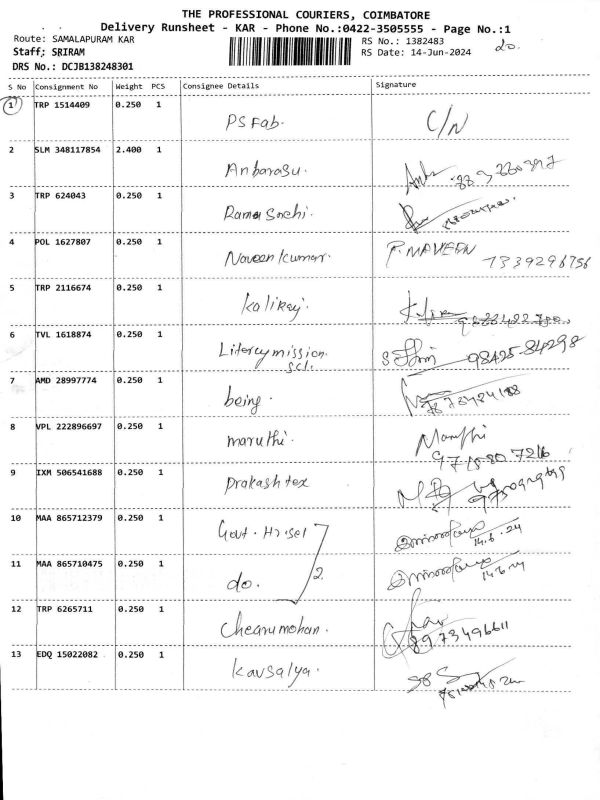 THE PROFESSIONAL COURIERS, COIMBATORE
Delivery Runsheet - KAR - Phone No.:0422-3505555 - Page No.:1
Route: SAMALAPURAM KAR
RS No.: 1382483
do.
Staff: SRIRAM
RS Date: 14-Jun-2024
DRS No.: DCJB138248301
S No Consignment No Weight PCS Consignee Details Signature
1 TRP 1514409 0.250 1 PS Fab. C/N
2 SLM 348117854 2.400 1 Anbarasu.
3 TRP 624043 0.250 1 Rama
4 POL 1627807 0.250 1 Naveen kumar. P. NAVEEN
7339296756
5 TRP 2116674 0.250 1 kaliraj.
6 TVL 1618874 0.250 1 Litercy mission. 98425-84298
scl.
7 AMD 28997774 0.250 1 being.
8 VPL 222896697 0.250 1 maruthi. Maruthi
9715807216
9 IXM 506541688 0.250 1 Prakash tex
10 MAA 865712379 0.250 1 Govt. Hr. scl
14.6.24
11 MAA 865710475 0.250 1 do. 2.
14.6.24
12 TRP 6265711 0.250 1
8973496611
13 EDQ 15022082 0.250 1 kausalya.